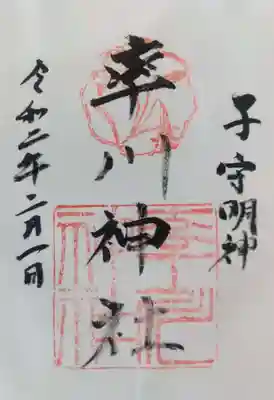 子守明神
率川神社
令和二年二月一日